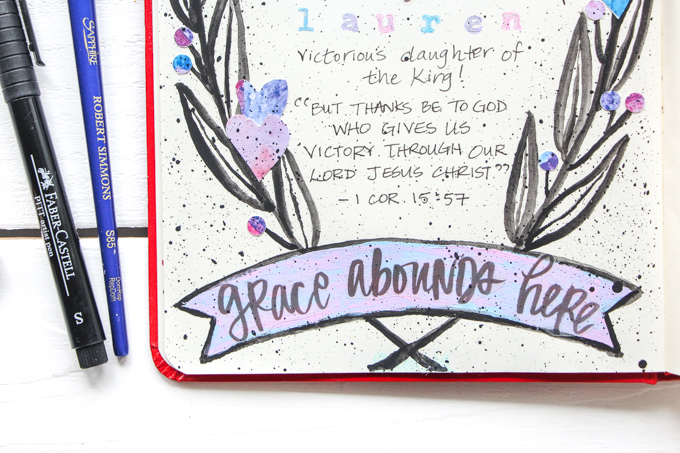 lauren
victorious daughter of
the King!
"BUT THANKS BE TO GOD
WHO GIVES US
VICTORY THROUGH OUR
LORD JESUS CHRIST"
- 1 COR. 15:57
grace abounds here
FABER-CASTELL
PITT artist pen
S
SAPPHIRE
ROBERT SIMMONS
S85